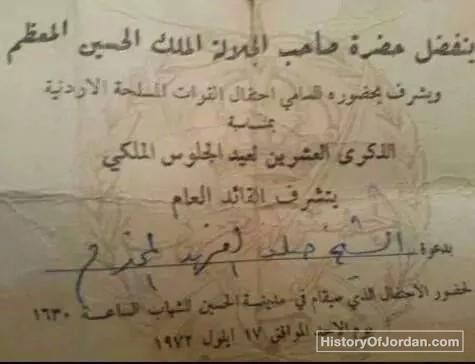 يتفضل حضرة صاحب الجلالة الملك الحسين المعظم
ويشرف بحضوره السامي احتفال القوات المسلحة الاردنية
بمناسبة
الذكرى العشرين لعيد الجلوس الملكي
يتشرف القائد العام
بدعوة الشيخ
لحضور الاحتفال الذي سيقام في مدينة الحسين للشباب الساعة ١٦٣٠
يوم الاحد الموافق ١٧ ايلول ١٩٧٢
HistoryOfJordan.com